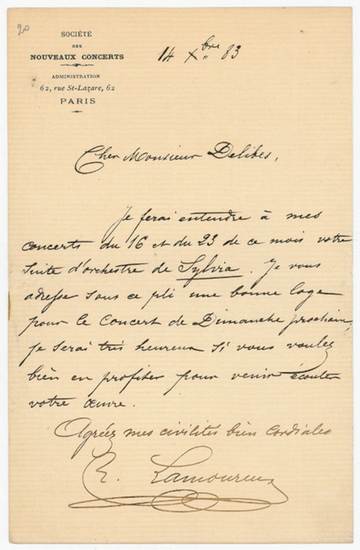 20
SOCIÉTÉ
DES
NOUVEAUX CONCERTS
ADMINISTRATION
62, rue St-Lazare, 62
PARIS
14 Xbre 83
Cher Monsieur Delibes,
Je ferai entendre à mes
concerts du 16 et du 23 de ce mois votre
Suite d'orchestre de Sylvia. Je vous
adresse sous ce pli une bonne loge
pour le Concert de Dimanche prochain,
je serai très heureux si vous voulez
bien en profiter pour venir écouter
votre œuvre.
Agréez mes civilités bien cordiales
C. Lamoureux